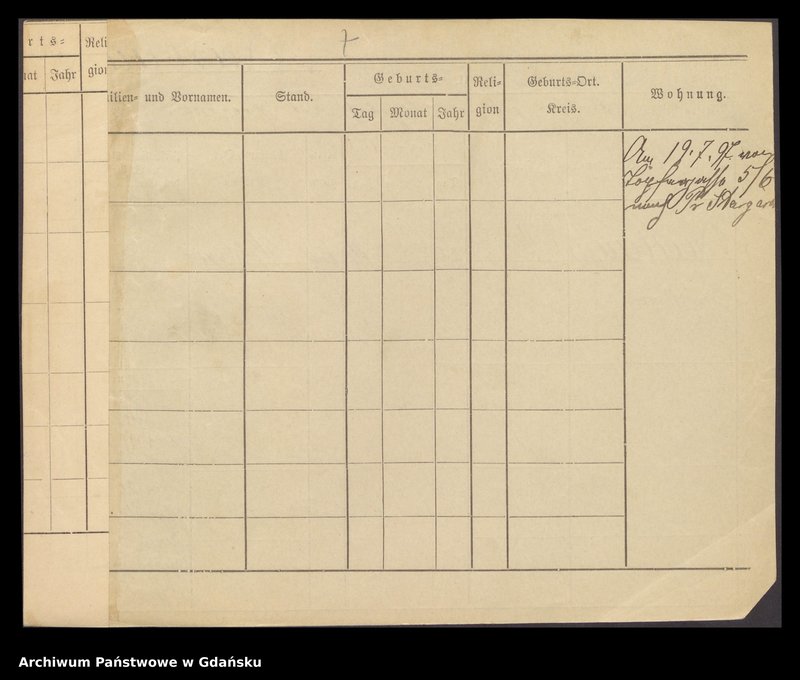 7
r t s =
Reli
nat Jahr gion
ilien= und Vornamen.
Stand.
Geburts=
Tag Monat Jahr
Reli=
gion
Geburts=Ort.
Kreis.
Wohnung.
Am 19.7.97 von
Töpfergasse 5/6
nach Pr Stargard
Archiwum Państwowe w Gdańsku